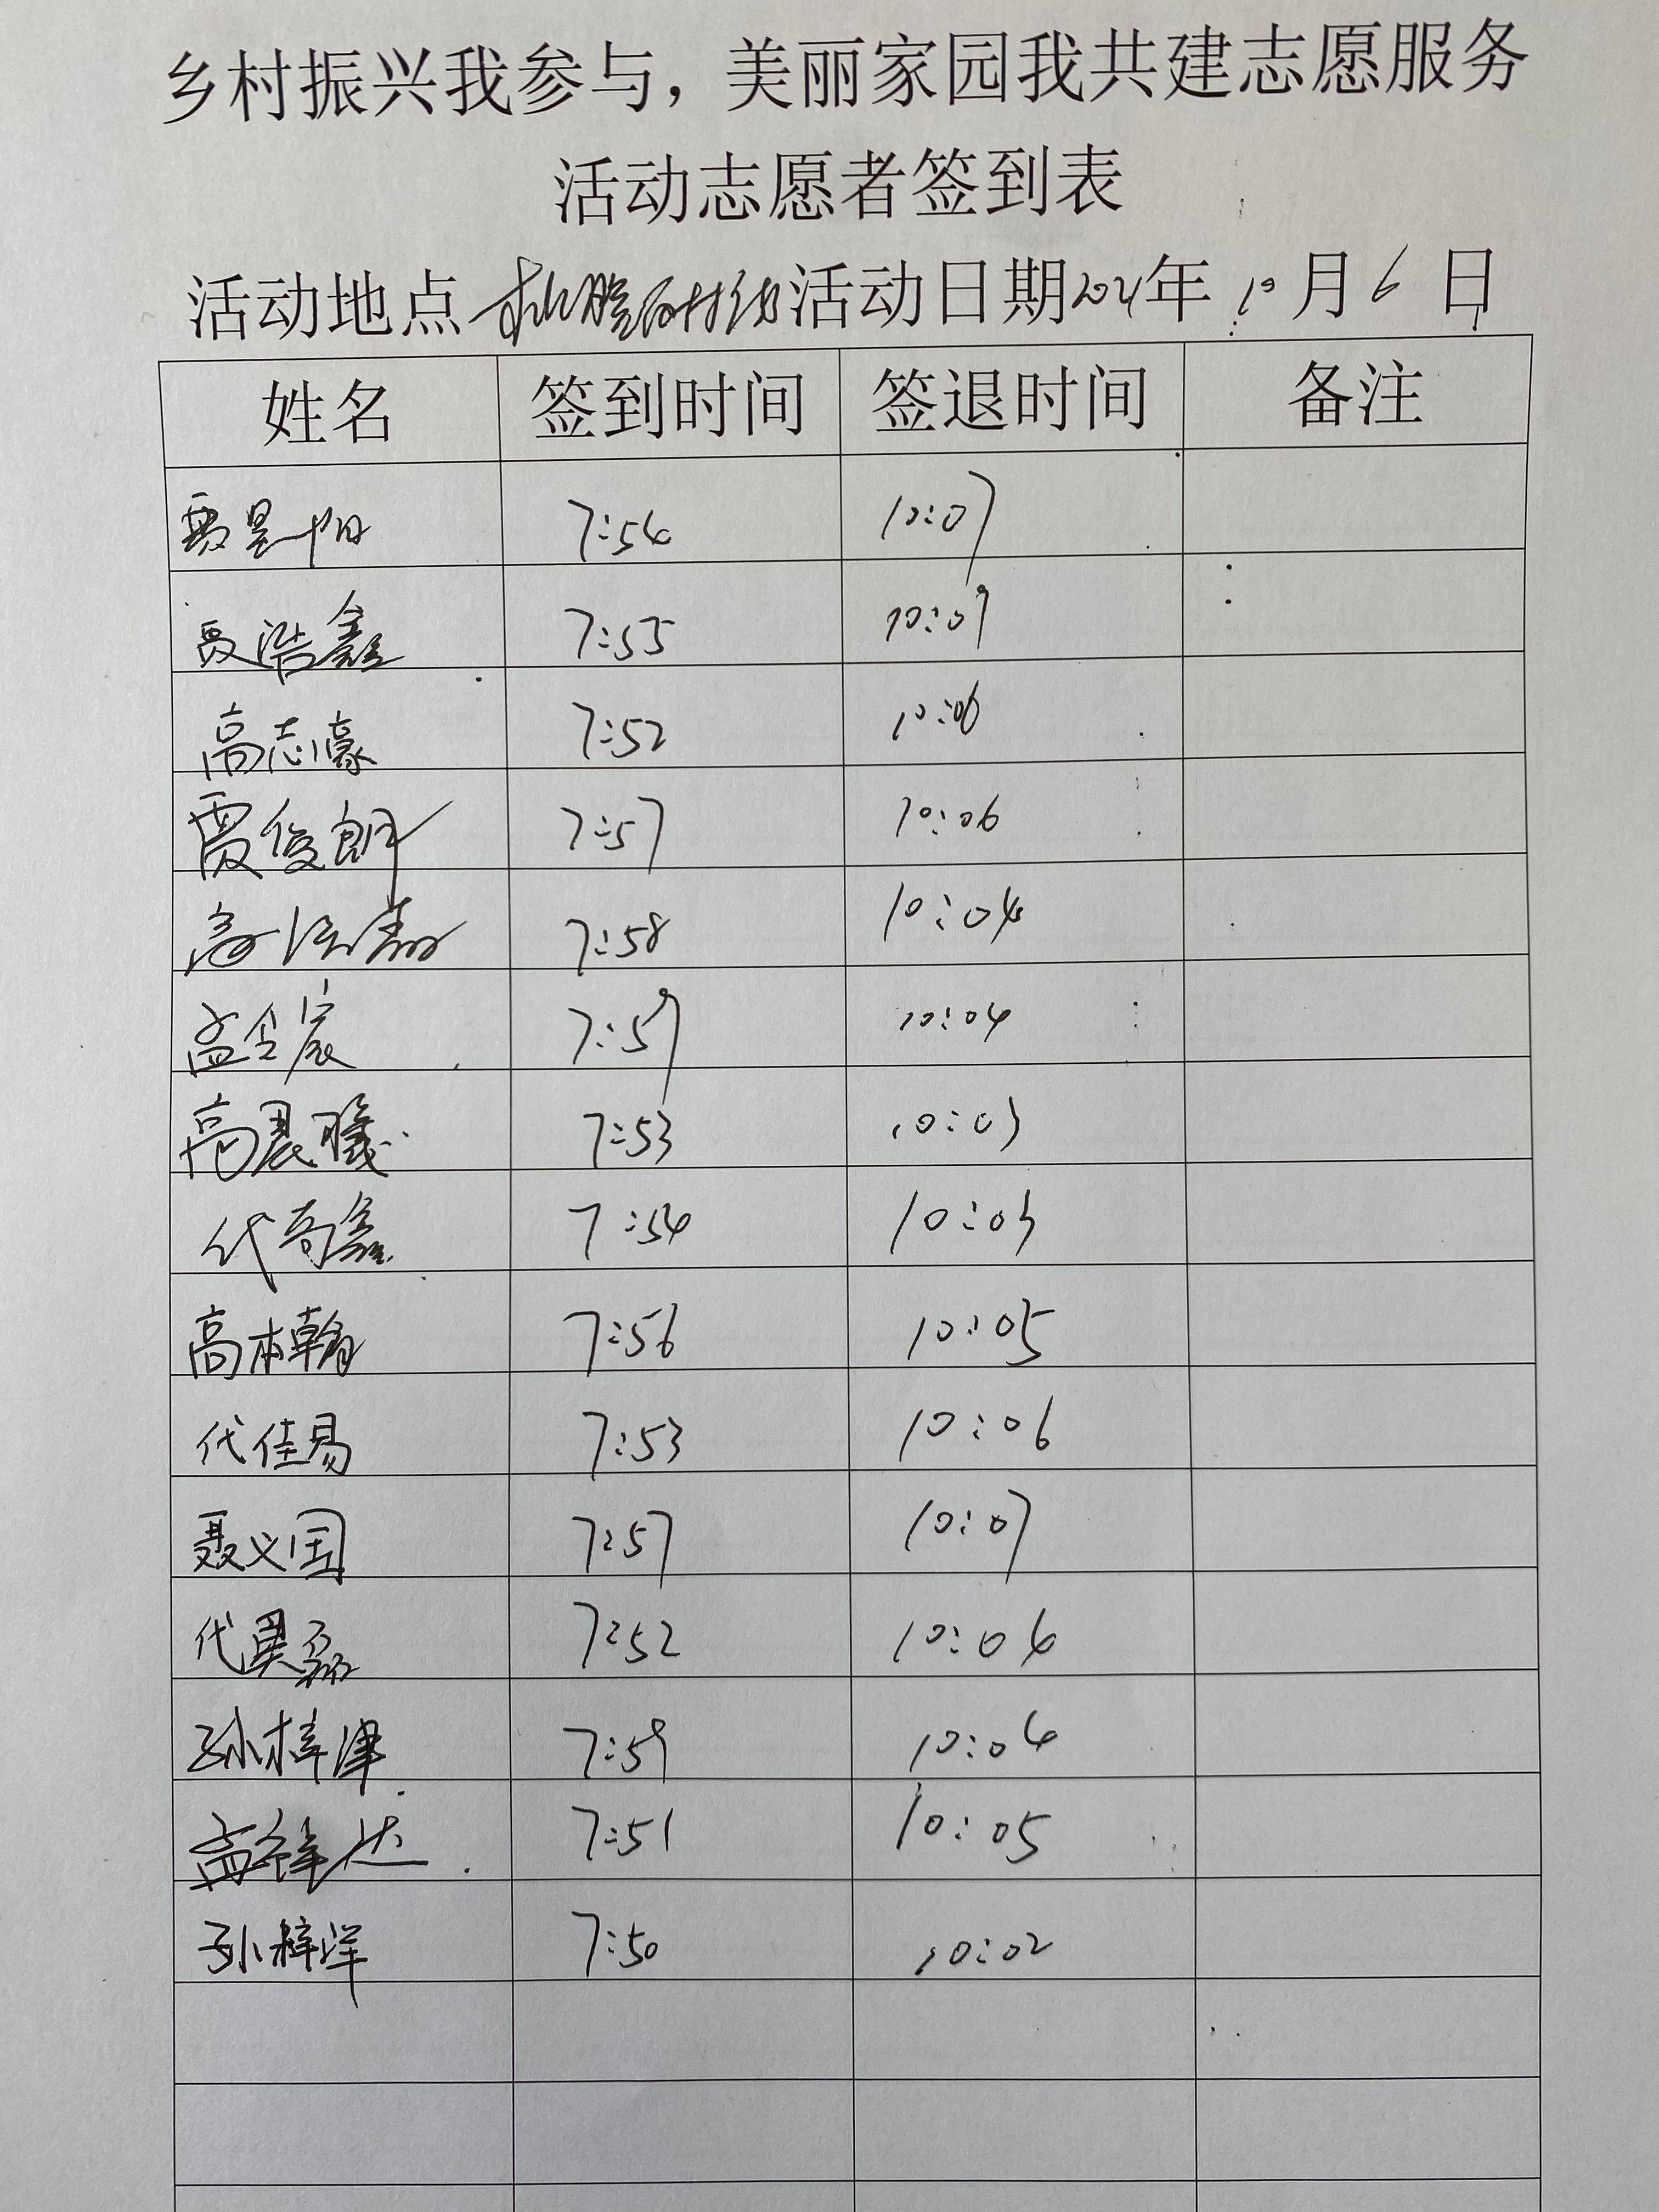 乡村振兴我参与，美丽家园我共建志愿服务
活动志愿者签到表
活动地点 活动日期2024年10月6日
姓名 签到时间 签退时间 备注
贾昱阳 7:54 10:07
贾浩鑫 7:55 10:07
高志濠 7:52 10:06
贾俊朗 7:57 10:06
高 7:58 10:04
孟令宸 7:59 10:04
高晨曦 7:53 10:03
代奇鑫 7:54 10:03
高本翰 7:56 10:05
代佳易 7:53 10:06
聂义国 7:57 10:07
代昊磊 7:52 10:04
孙梓津 7:59 10:04
孟祥达 7:51 10:05
孙梓洋 7:50 10:02